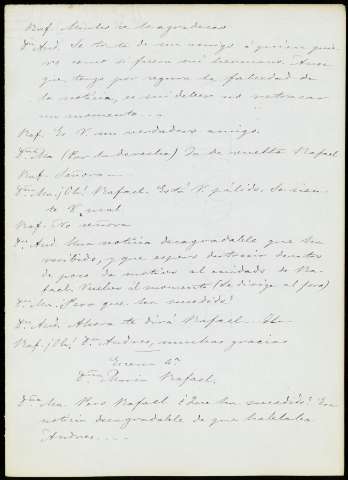 Raf. Mucho se lo agradezco
Dn. And. Se trata de un amigo á quien quie-
ro como si fuera mi hermano. Aun
que tengo por segura la falsedad de
la noticia, es mi deber no retrasar
un momento...
Raf. Es V. un verdadero amigo.
Dña. Ma. (Por la derecha) Ya de vuelta Rafael
Raf. Señora...
Dña. Ma. ¡Oh! Rafael. Está V. pálido. Se sien-
te V. mal
Raf. No señora
Dn. And. Una noticia desagradable que ha
recibido, y que espero destruir dentro
de poco da motivo al cuidado de Ra-
fael. Vuelvo al momento (Se dirige al foro)
Dña. Ma. Pero que ha sucedido?
Dn. And. Ahora te dirá Rafael.
Raf. ¡Oh! Dn. Andres, muchas gracias
Escena 4ª
Dña. Maria Rafael.
Dña. Ma. Pero Rafael ¿Que ha sucedido? Esa
noticia desagradable de que hablaba
Andres....